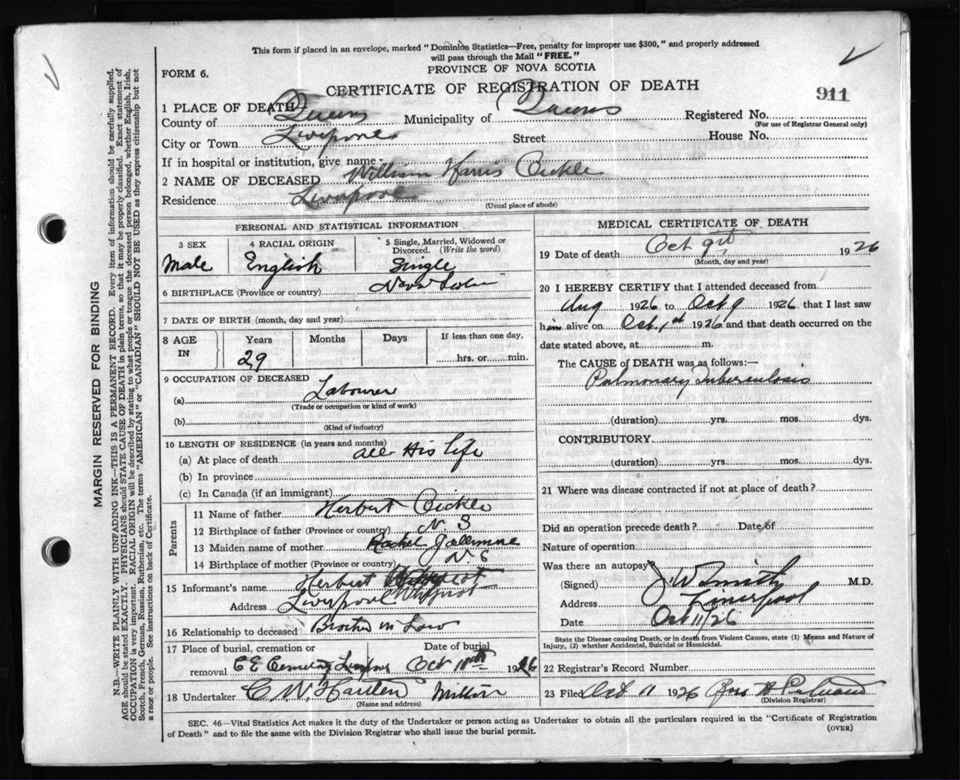 This form if placed in an envelope, marked "Dominion Statistics—Free, penalty for improper use $300," and properly addressed
will pass through the Mail "FREE."
FORM 6.
PROVINCE OF NOVA SCOTIA
CERTIFICATE OF REGISTRATION OF DEATH
911
1 PLACE OF DEATH
County of Queens Municipality of Queens Registered No.
(For use of Registrar General only)
City or Town Liverpool Street House No.
If in hospital or institution, give name
2 NAME OF DECEASED William Harris
Residence Liverpool
(Usual place of abode)
PERSONAL AND STATISTICAL INFORMATION
3 SEX 4 RACIAL ORIGIN 5 Single, Married, Widowed or Divorced. (Write the word)
Male English Single
6 BIRTHPLACE (Province or country) Nova Scotia
7 DATE OF BIRTH (month, day and year)
8 AGE IN Years Months Days If less than one day,
29 hrs. or min.
9 OCCUPATION OF DECEASED
(a) Labourer
(Trade or occupation or kind of work)
(b)
(Kind of industry)
10 LENGTH OF RESIDENCE (in years and months)
(a) At place of death all His life
(b) In province
(c) In Canada (if an immigrant)
Parents
11 Name of father Herbert
12 Birthplace of father (Province or country) N. S
13 Maiden name of mother Rachel
14 Birthplace of mother (Province or country) N S
15 Informant's name Herbert
Address Liverpool
16 Relationship to deceased Brother in Law
17 Place of burial, cremation or Date of burial
removal C E Cemetery Oct 1926
18 Undertaker C. W.
(Name and address)
MEDICAL CERTIFICATE OF DEATH
19 Date of death Oct 9 1926
(Month, day and year)
20 I HEREBY CERTIFY that I attended deceased from
Aug 1926 to Oct 9 1926 that I last saw
him alive on Oct 1st 1926 and that death occurred on
date stated above, at m.
The CAUSE of DEATH was as follows:—
Pulmonary Tuberculosis
(duration) yrs. mos. dys.
CONTRIBUTORY
(duration) yrs. mos. dys.
21 Where was disease contracted if not at place of death?
Did an operation precede death? Date of
Nature of operation
Was there an autopsy
(Signed) J W Smith M.D.
Address Liverpool
Date Oct 11/26
State the Disease causing Death, or in death from Violent Causes, state (1) Means and Nature of
Injury, (2) whether Accidental, Suicidal or Homicidal.
22 Registrar's Record Number
23 Filed Oct 11 1926
(Division Registrar)
SEC. 46—Vital Statistics Act makes it the duty of the Undertaker or person acting as Undertaker to obtain all the particulars required in the "Certificate of Registration
of Death" and to file the same with the Division Registrar who shall issue the burial permit.
(OVER)
MARGIN RESERVED FOR BINDING
N.B.—WRITE PLAINLY WITH UNFADING INK—THIS IS A PERMANENT RECORD. Every item of information should be carefully supplied.
AGE should be stated EXACTLY. PHYSICIANS should STATE CAUSE OF DEATH in plain terms, so that it may be properly classified. Exact statement of
OCCUPATION is very important. RACIAL ORIGIN will be described by stating to what people or tongue the deceased person belonged, whether English, Irish,
Scotch, French, German, Russian, Ruthenian, etc. The terms "AMERICAN" or "CANADIAN" SHOULD NOT BE USED as they express citizenship but not
a race or people. See instructions on back of Certificate.